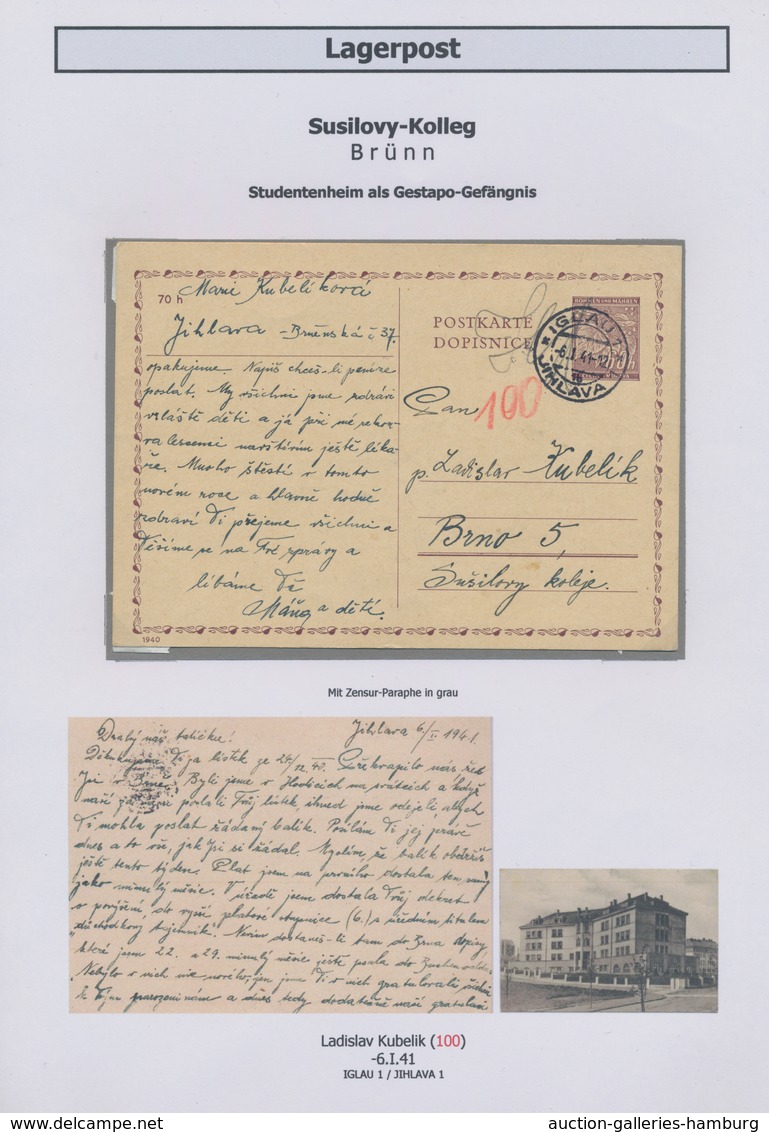 Lagerpost
Susilovy-Kolleg
Brünn
Studentenheim als Gestapo-Gefängnis
Marie Kubelíková
70 h
Jihlava - Brněnská č. 37.
POSTKARTE
DOPISNICE
BÖHMEN UND MÄHREN
IGLAU 1
-6.I.41-12
JIHLAVA 1
opakujeme. Napiš chceš-li peníze
poslat. My všichni jsme zdrávi
zvláště děti a já při mé rekon-
valescenci navštívím ještě léka-
ře. Mnoho štěstí v tomto
novém roce a hlavně hodně
zdraví Ti přejeme všichni a
Těšíme se na Tvé zprávy a
líbáme Tě
Máňa a děti.
Pan
100
p. Ladislav Kubelík
Brno 5,
Sušilovy koleje.
1940
Mit Zensur-Paraphe in grau
Drahý náš tatíčku! Jihlava 6/I 1941.
Děkujeme Ti za lístek ze 26/12 40. Překvapilo nás, že
Jsi v Brně. Byli jsme v na svátcích a když
naši poslali Tvůj lístek, ihned jsme odejeli, abych
Ti mohla poslat žádaný balík. Posílám Ti jej právě
dnes a to vše, jak jsi si žádal. Myslím, že balík obdržíš
ještě tento týden. Plat jsem na prvního dostala ten samý
jako minulý měsíc. V úřadě jsem dostala Tvůj dekret
o povýšení, do vyšší platové stupnice (6.) s úředním titulem
"důchodkový tajemník". Nevím dostaneš-li tam do Brna dopisy,
které jsem 22. a 29. minulý měsíc ještě psala do
Nebylo v nich nic nového, jen jsme Ti v nich gratulovali
k Tvým narozeninám a dnes tedy dodatečně naši gratulaci
Ladislav Kubelik (100)
-6.I.41
IGLAU 1 / JIHLAVA 1
auction-galleries-hamburg